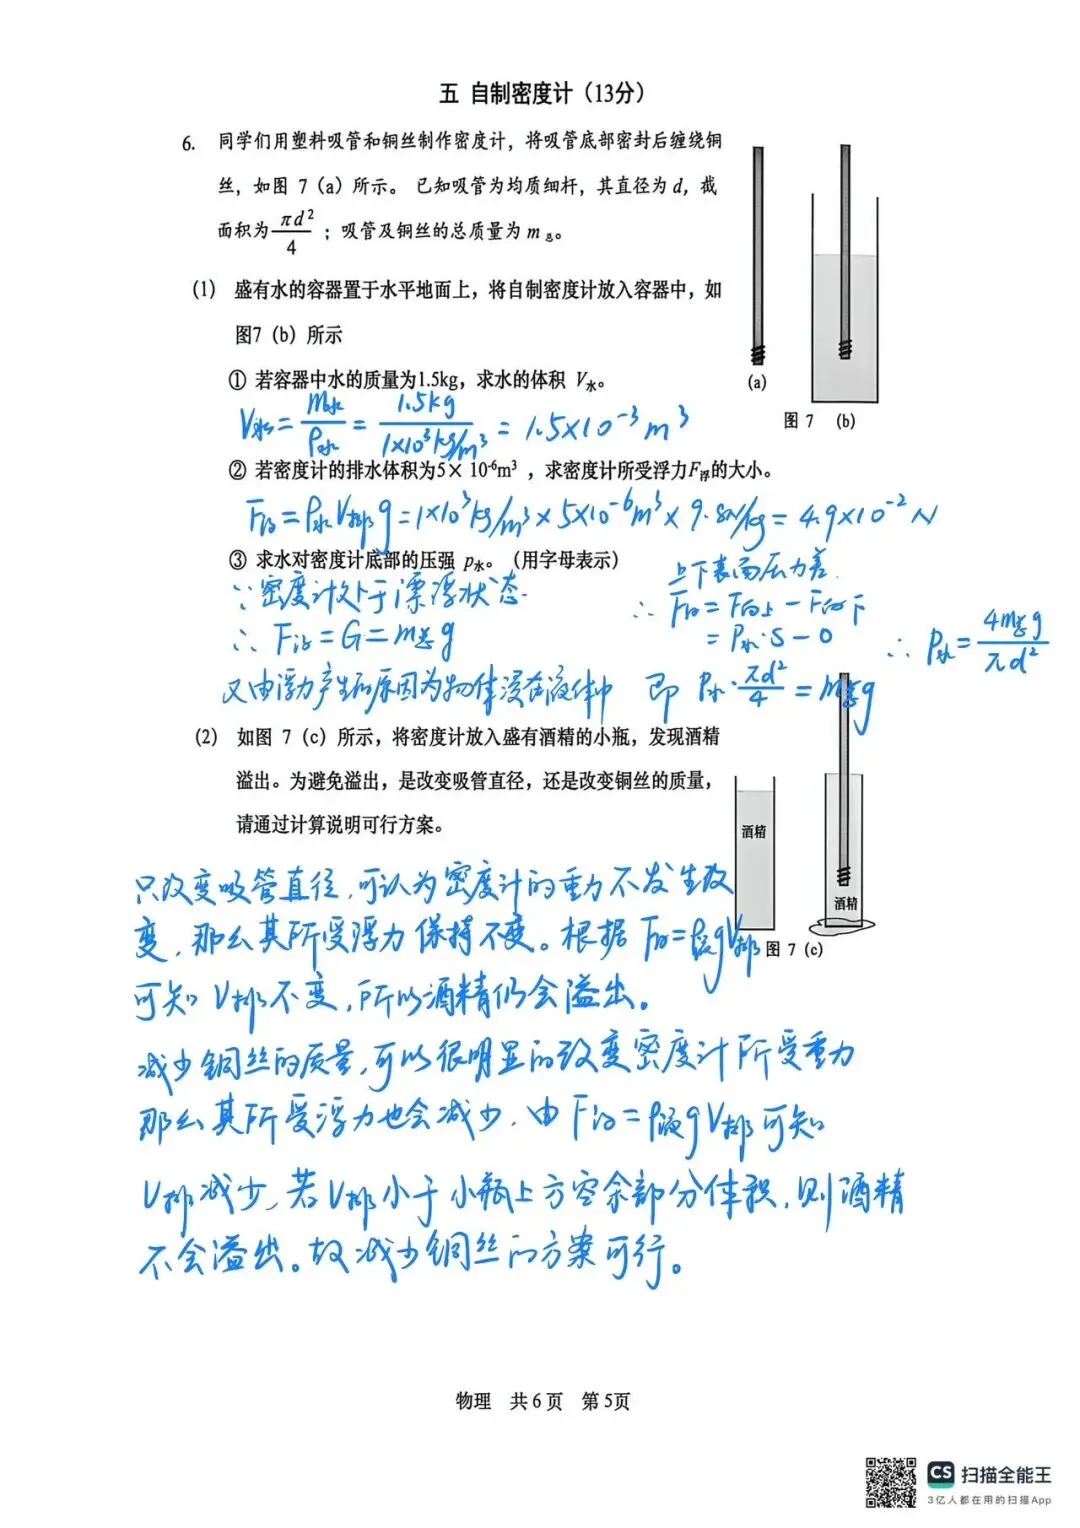 五 自制密度计（13分）
6. 同学们用塑料吸管和铜丝制作密度计，将吸管底部密封后缠绕铜
丝，如图 7（a）所示。 已知吸管为均质细杆，其直径为 d，截
面积为 πd²/4 ；吸管及铜丝的总质量为 m总。
(1) 盛有水的容器置于水平地面上，将自制密度计放入容器中，如
图7（b）所示
① 若容器中水的质量为1.5kg，求水的体积 V水。
(a)
图 7 (b)
V水=m水/ρ水=1.5kg/1×10³kg/m³=1.5×10⁻³m³
② 若密度计的排水体积为5× 10⁻⁶m³ ，求密度计所受浮力F浮的大小。
F浮=ρ水V排g=1×10³kg/m³×5×10⁻⁶m³×9.8N/kg=4.9×10⁻²N
③ 求水对密度计底部的压强 p水。（用字母表示）
∵密度计处于漂浮状态.
∴F浮=G=m总g
又由浮力产生的原因为物体浸在液体中
上下表面压力差.
∴F浮=F向上-F向下
=P水·S-0
即 P水·πd²/4=m总g
∴P水=4m总g/πd²
(2) 如图 7（c）所示，将密度计放入盛有酒精的小瓶，发现酒精
溢出。为避免溢出，是改变吸管直径，还是改变铜丝的质量，
请通过计算说明可行方案。
酒精
酒精
图 7 (c)
只改变吸管直径,可认为密度计的重力不发生改
变,那么其所受浮力保持不变。根据F浮=ρ液gV排
可知V排不变,所以酒精仍会溢出。
减少铜丝的质量,可以很明显的改变密度计所受重力
那么其所受浮力也会减少.由F浮=ρ液gV排可知
V排减少,若V排小于小瓶上方空余部分体积,则酒精
不会溢出。故减少铜丝的方案可行。
物理 共6页 第5页
CS 扫描全能王
3亿人都在用的扫描App